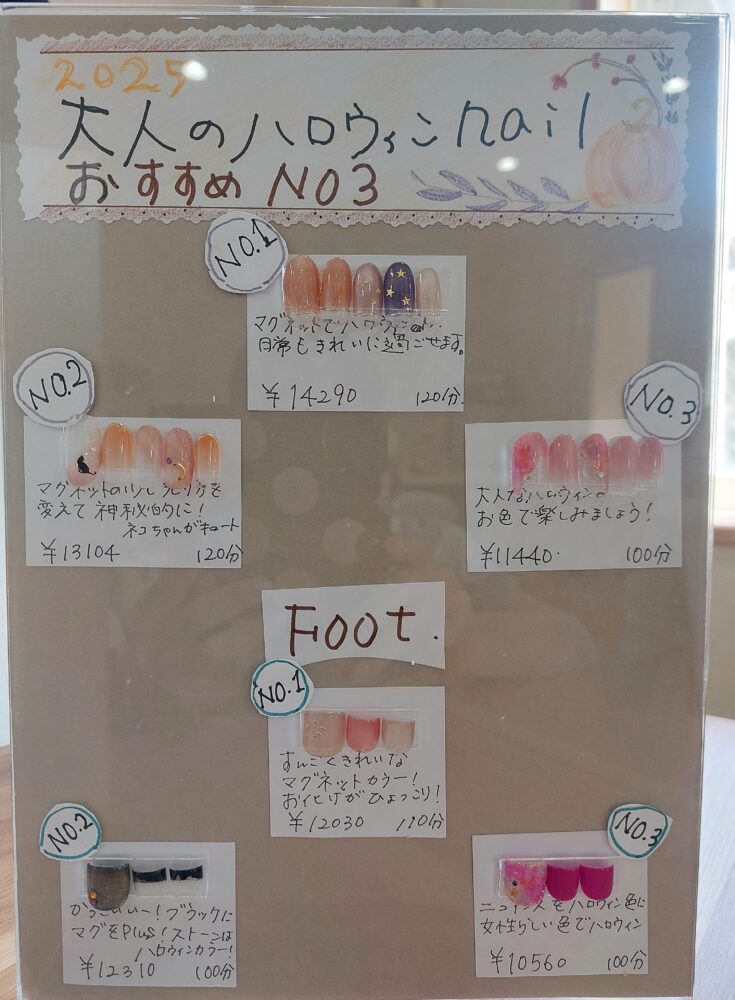 2025
大人のハロウィンnail
おすすめ NO3
NO.1
マグネットでハロウィン
日常もきれいに過ごせます。
¥14290 120分
NO.2
マグネットの
変えて神秘的に!
ネコちゃんがキュート
¥13104 120分
NO.3
大人なハロウィン。
お色で楽しみましょう!
¥11440 100分
Foot.
NO.1
すんごくきれいな
マグネットカラー!
お化けがひょっこり!
¥12030 110分
NO.2
かっこいい〜!ブラックに
マグをPlus!ストーンは
ハロウィンカラー!
¥12310 100分
NO.3
ニュアンスをハロウィン色に
女性らしい色でハロウィン
¥10560 100分